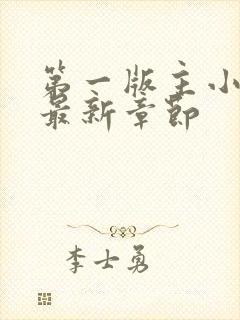 第一版主小
最新章节
李士勇